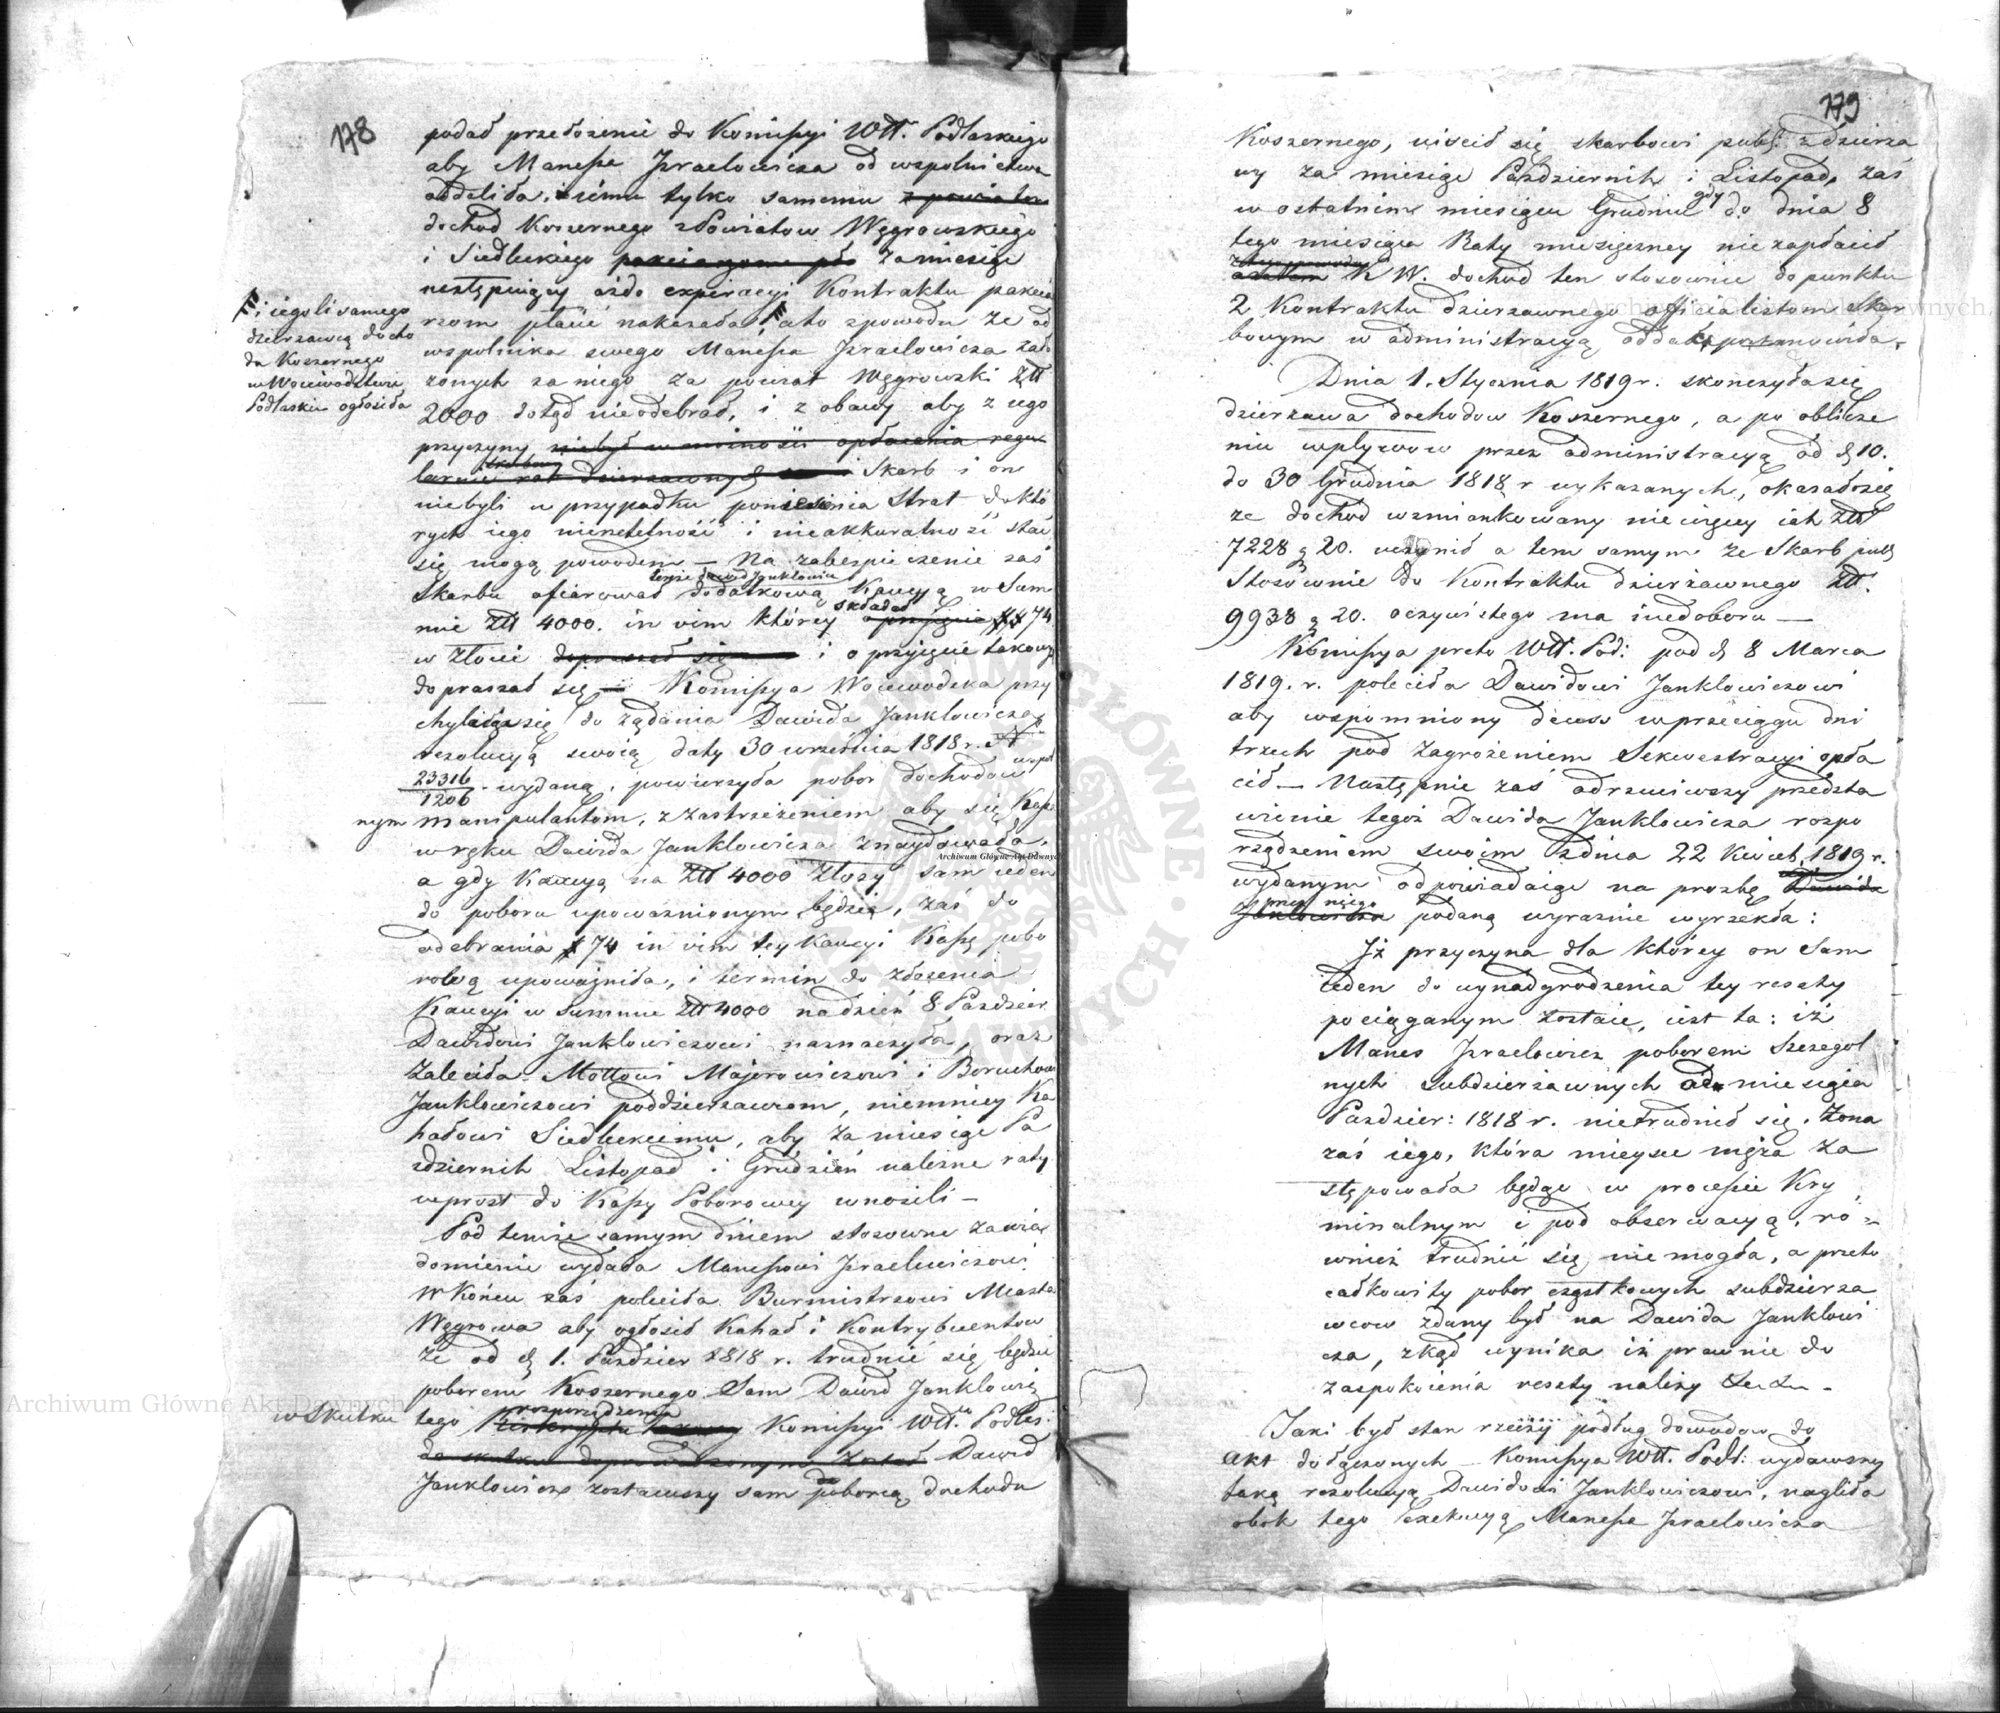 178
podał przełożenie do Komissyi Wtt. Podlaskiego
aby Manessa Jzraelowicza od wspolnictwa
oddeliła, iemu tylko samemu z powiatow
dochod Koszernego z Powiatow Węgrowskiego
i Siedleckiego za miesiące
następuiący aż do expiracyi Kontraktu pakcia
rzom płacić nakazała, a to z powodu że od
i iego li samego
dzierzawcą docho
du Koszernego
w Wojewodztwie
Podlaskim ogłosiła
wspolnika swego Manessa Jzraelowicza zało
żonych za niego za powiat Węgrowski Ztt
2000 dotąd nieodebrał, i z obawy aby z iego
przyczyny niebył w możności opłacania regu
larnie rat dzierzawnych Skarb i on
niebyli w przypadku poniesienia Strat do któ
rych iego nierzetelność i nieakkuratność stać
się mogą powodem — Na zabespieczenie zaś
tenże Dawid Janklowicz
Skarbu ofiarował dodatkową Kaucyą w Sum
mie Ztt 4000. in vim którey składał 74
w złocie i o przyięcie takowych
dopraszał się — Kommissya Woiewodzka przy
chylaiąc się do żądania Dawida Janklowicza
rezolucyą swoią daty 30 września 1818 r. N
23316/1206 wydaną, powierzyła pobor dochodow wspol
nym manipulantom, z zastrzeżeniem aby się Kassa
w ręku Dawida Janklowicza znaydowała,
a gdy Kaucyą na Ztt 4000 złoży sam ieden
do poboru upoważnionym będzie, zaś do
odebrania # 74 in vim tey Kaucyi Kassę pobo
rową upoważniła, i termin do złożenia
Kaucyi w Summie Ztt 4000 na dzień 8 Paździer
Dawidowi Janklowiczowi naznaczyła, oraz
Zaleciła Mottowi Majorowiczowi i Boruchowi
Janklowiczowi poddzierzawcom, niemniey Ka
hałowi Siedleckiemu, aby za miesiące Pa
ździernik Listopad i Grudzień należne raty
wprost do Kassy Poborowey wnosili —
Pod temże samym dniem stosowne zawia
domienie wydała Manessowi Jzraelowiczowi
W końcu zaś poleciła Burmistrzowi Miasta
Węgrowa aby ogłosił Kahał i Kontrybuentow
że od d 1. Paździer 1818 r. trudnić się będzie
poborem Koszernego Sam Dawid Janklowicz
w Skutku tego rozporządzenia Komissyi Wtt. Podlas:
do skutku doprowadzonym został Dawid
Janklowicz zostawszy sam poborcą dochodu
179
Koszernego, uiscił się skarbowi publ: z dzierża
wy za miesiące Pazdziernik i Listopad, zaś
w ostatnim miesiącu Grudniu gdy do dnia 8
tego miesiąca Raty miesięczney nie zapłacił
z tego powodu
K W. dochod ten stosownie do punktu
2 Kontraktu dzierzawnego officialistom skar
bowym w administracyą oddać postanowiła.
Dnia 1. Stycznia 1819 r. skonczyła się
dzierzawa dochodow Koszernego, a po oblicze
niu wpływow przez administracyą od d 10.
do 30 Grudnia 1818 r wykazanych, okazało się
że dochod wzmiankowany nie więcey iak Ztt
7228 g 20. uczynił a tem samym że Skarb publ
Stosownie do Kontraktu dzierżawnego Ztt.
9938 g 20. oczywistego ma niedoboru —
Komissya przeto Wtt. Pod: pod d 8 Marca
1819. r. poleciła Dawidowi Janklowiczowi
aby wspomniony deces w przeciągu dni
trzech pod zagrożeniem Sekwestracyi opła
cił — Następnie zaś odrzuciwszy przedsta
wienie tegoż Dawida Janklowicza rozpo
rządzeniem swoim z dnia 22 Kwiet. 1819 r.
wydanym odpowiadaiąc na prozbę Dawida
przez niego
Janklowicza podaną wyraznie wyrzekła:
Jż przyczyna dla którey on Sam
ieden do wynadgrodzenia tey reszty
pociąganym zostaie, iest ta: iż
Manes Jzraelowicz poborem szczegol
nych Subdzierżawnych od miesiąca
Paździer: 1818 r. nietrudnił się, żona
zaś iego, która mieysce męża za
stępowała będąc w processie Kry
minalnym i pod obserwacyą, ro=
wnież trudnić się nie mogła, a przeto
całkowity pobor cząstkowych subdzierża
wcow zdany był na Dawida Janklowi
cza, zkąd wynika iż prawnie do
zaspokoienia reszty należy
Jaki był stan rzeczy podług dowodow do
akt dołączonych — Komissya Wtt. Podl: wydawszy
taką rezolucyą Dawidowi Janklowiczowi, nagliła
obok tego Exekucyą Manessa Jzraelowicza
Archiwum Główne Akt Dawnych
Archiwum Główne Akt Dawnych
Archiwum Główne Akt Dawnych